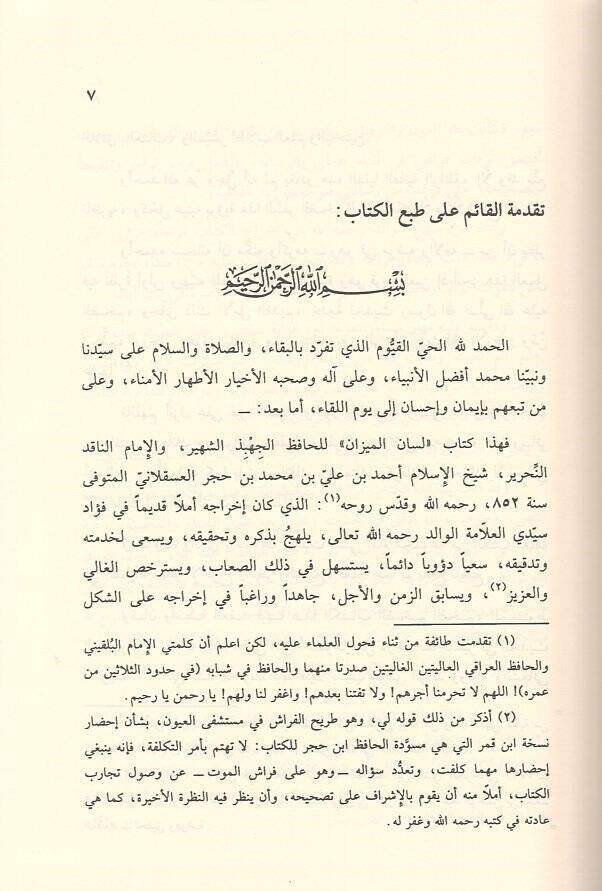 ٧
تقدمة القائم على طبع الكتاب:
بسم الله الرحمن الرحيم
الحمد لله الحيّ القيُّوم الذي تفرّد بالبقاء، والصلاة والسلام على سيّدنا
ونبيّنا محمد أفضل الأنبياء، وعلى آله وصحبه الأخيار الأطهار الأمناء، وعلى
من تبعهم بإيمان وإحسان إلى يوم اللقاء، أما بعد: ــ
فهذا كتاب «لسان الميزان» للحافظ الجِهْبِذ الشهير، والإمام الناقد
النِّحرير، شيخ الإسلام أحمد بن عليّ بن محمد بن حجر العسقلانيّ المتوفى
سنة ٨٥٢، رحمه الله وقدّس روحه(١): الذي كان إخراجه أملاً قديماً في فؤاد
سيّدي العلاّمة الوالد رحمه الله تعالى، يلهجُ بذكره وتحقيقه، ويسعى لخدمته
وتدقيقه، سعياً دؤوباً دائماً، يستسهل في ذلك الصعاب، ويسترخص الغالي
والعزيز(٢)، ويسابق الزمن والأجل، جاهداً وراغباً في إخراجه على الشكل
(١) تقدمت طائفة من ثناء فحول العلماء عليه، لكن اعلم أن كلمتي الإمام البُلقيني
والحافظ العراقي العاليتين الغاليتين صدرتا منهما والحافظ في شبابه (في حدود الثلاثين من
عمره)! اللهم لا تحرمنا أجرهم! ولا تفتنا بعدهم! واغفر لنا ولهم! يا رحمن يا رحيم.
(٢) أذكر من ذلك قوله لي، وهو طريح الفراش في مستشفى العيون، بشأن إحضار
نسخة ابن قمر التي هي مسوَّدة الحافظ ابن حجر للكتاب: لا تهتم بأمر التكلفة، فإنه ينبغي
إحضارها مهما كلفت، وتعدُّد سؤاله ــ وهو على فراش الموت ــ عن وصول تجارب
الكتاب، أملاً منه أن يقوم بالإشراف على تصحيحه، وأن ينظر فيه النظرة الأخيرة، كما هي
عادته في كتبه رحمه الله وغفر له.